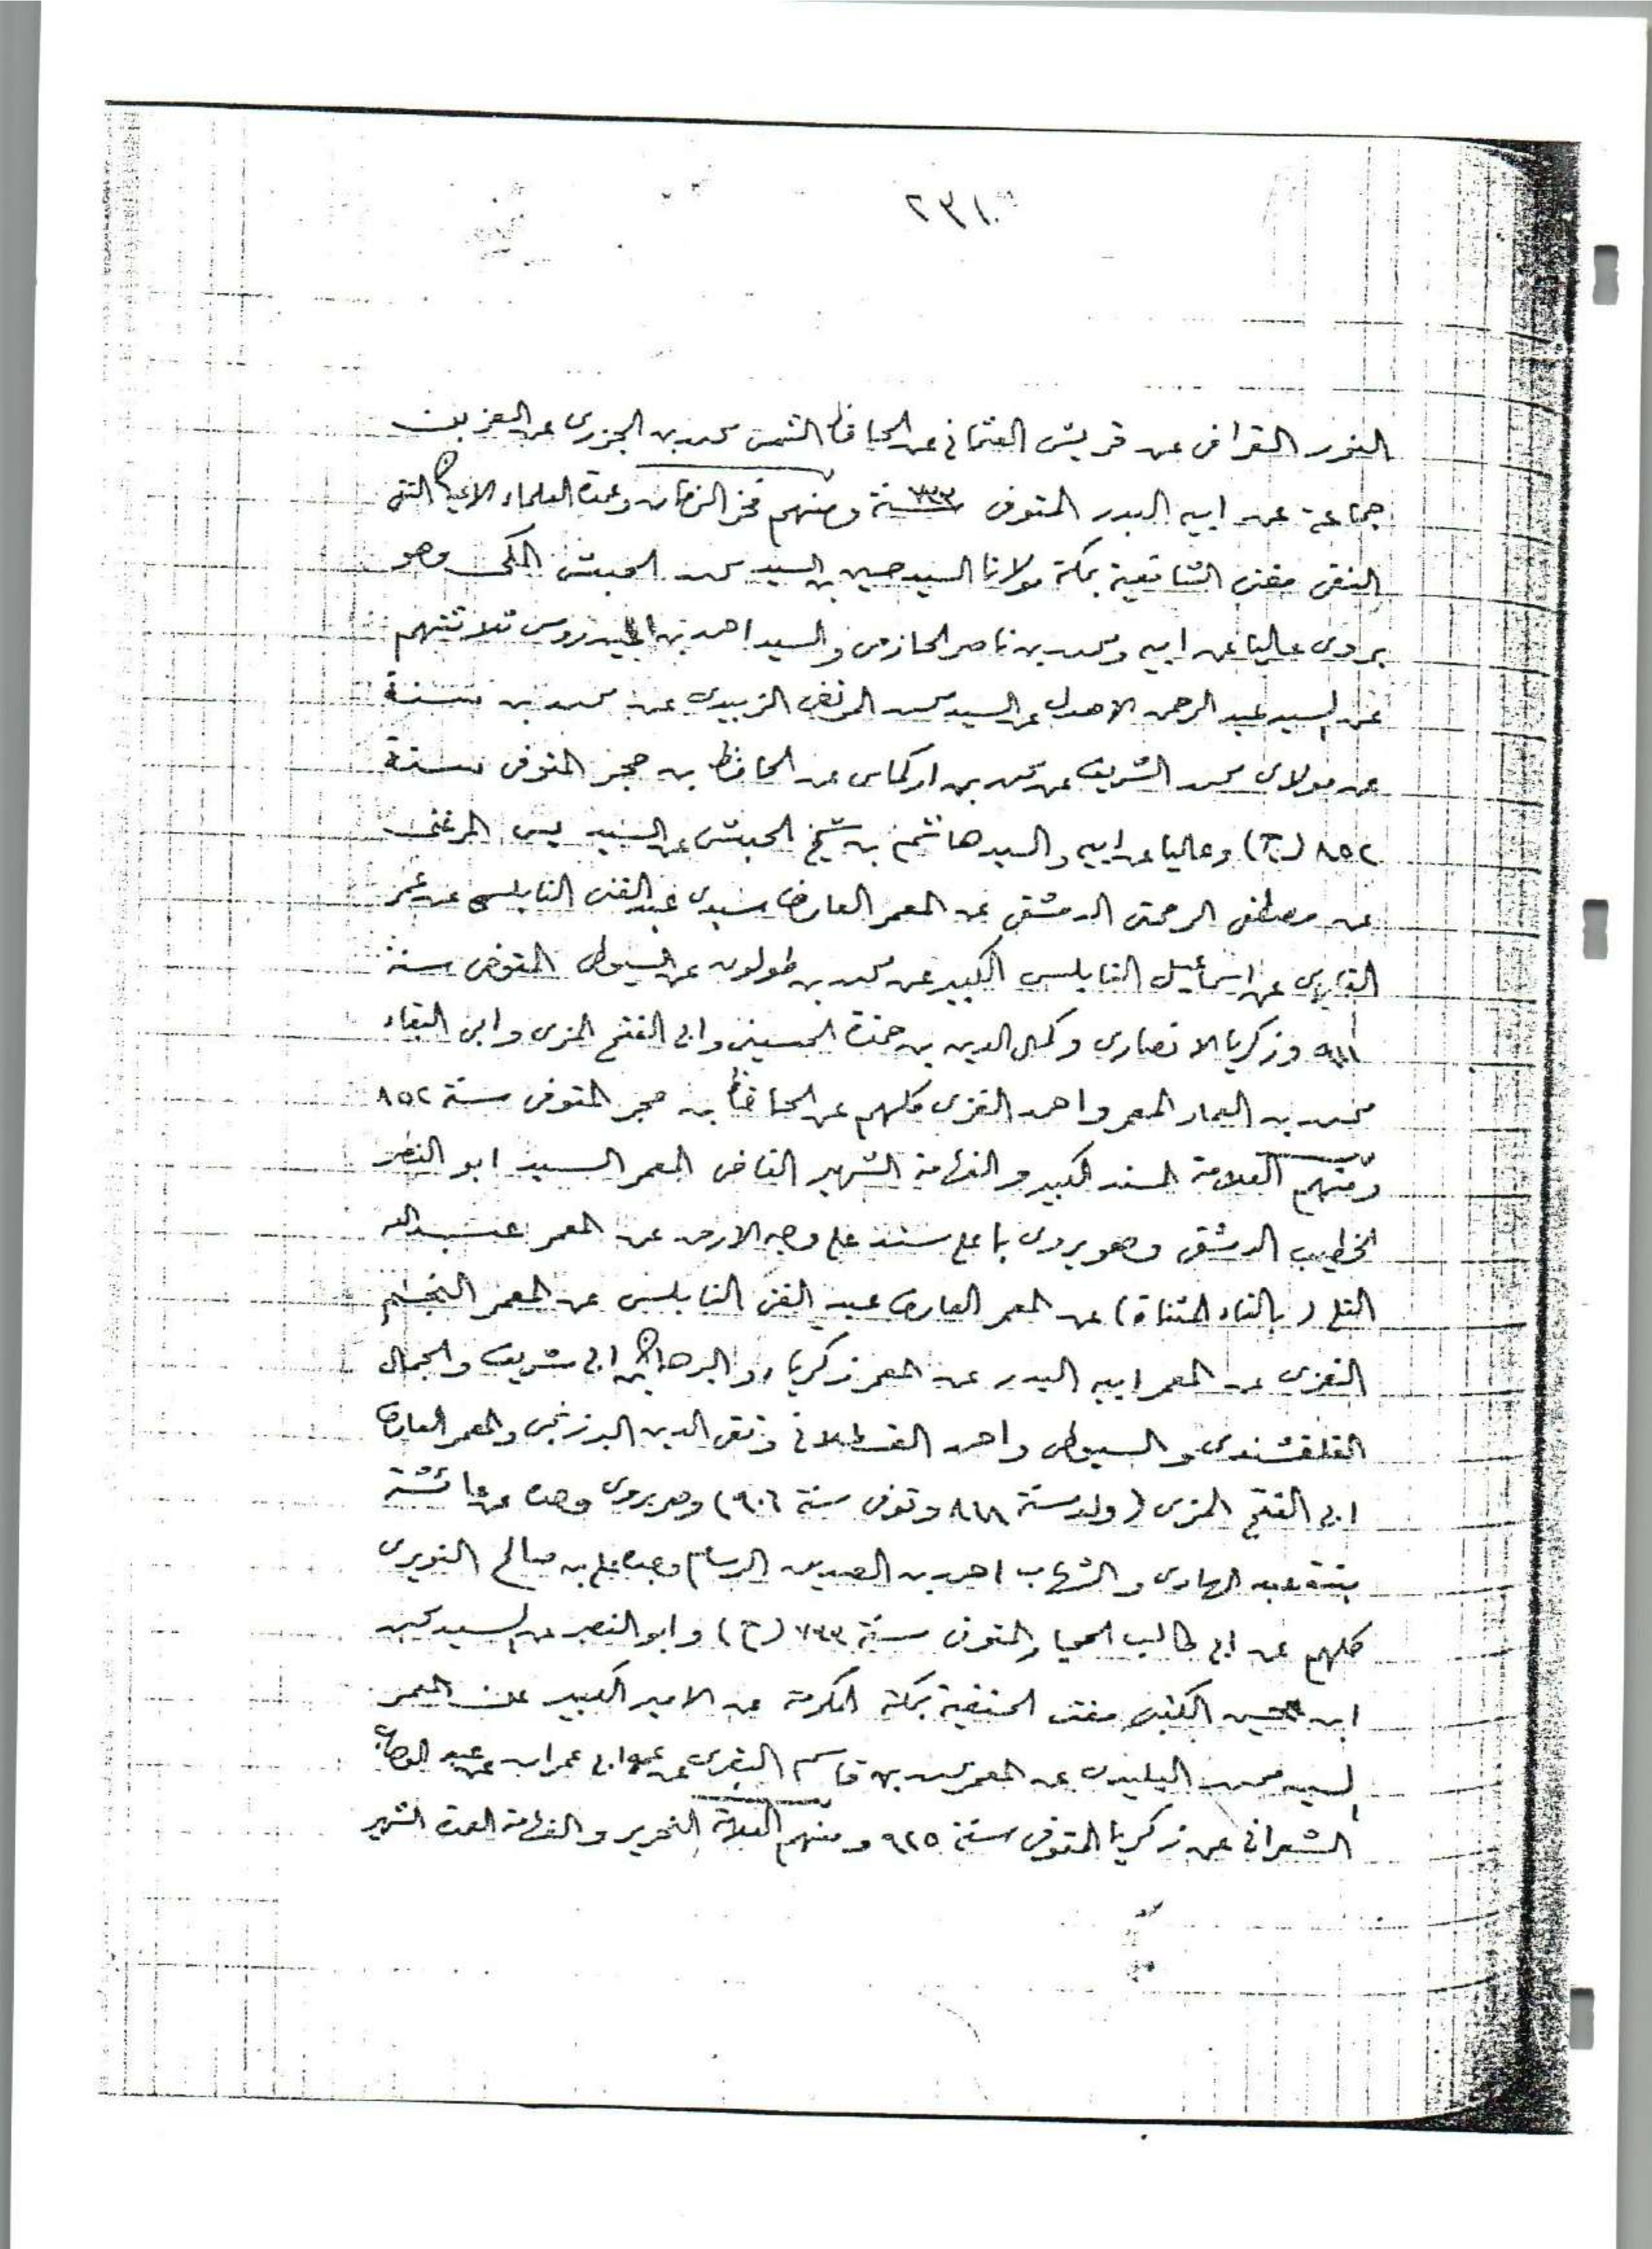 ٢٣١
النور القرافى عن قريش العثمانى عن الحافظ الشمس محمد بن الجزرى عن العز بن
جماعة عن ابيه البدر المتوفى سنة ٧٣٣ ومنهم فخر الزمان وعمدة العلماء الاعيان التقى
النقى مفتى الشافعية بمكة مولانا السيد حسين بن السيد محمد الحبشى المكى وهو
يروى عاليا عن ابيه ومحمد بن ناصر الحازمى والسيد احمد بن العيدروس ثلاثتهم
عن السيد عبد الرحمن الاهدل عن السيد محمد المرتضى الزبيدى عن محمد بن سنة
عن مولاى محمد الشريف عن محمد بن اركماس عن الحافظ بن حجر المتوفى سنة
٨٥٢ (ح) وعاليا عن ابيه والسيد هاشم بن شيخ الحبشى عن السيد يس المرغنى
عن مصطفى الرحمتى الدمشقى عن المعمر العارف سيدى عبد الغنى النابلسى عن عمر
القارى عن اسماعيل النابلسى الكبير عن محمد بن طولون عن السيوطى المتوفى سنة
٩١١ وزكريا الانصارى وكمال الدين بن حمزة الحسينى وابى الفتح المزى وابى البقاء
محمد بن العماد المعمر واحمد الغزى كلهم عن الحافظ بن حجر المتوفى سنة ٨٥٢
ومنهم العلامة المسند الكبير والفهامة الشهير القاضى المعمر السيد ابو النصر
الخطيب الدمشقى وهو يروى باعلى سند على وجه الارض عن المعمر عبد الله
التلى (بالتاء المثناة) عن المعمر العارف عبد الغنى النابلسى عن المعمر النجم
الغزى عن المعمر ابيه البدر عن المعمر زكرياء والبرهان بن ابى شريف والجمال
القلقشندى والسيوطى واحمد القسطلانى وتقى الدين البرزنجى والمعمر العارف
ابى الفتح المزى (ولد سنة ٨١٨ وتوفى سنة ٩٠٦) وهو يروى وحده عن عائشة
بنت عبد الهادى والشهاب احمد بن الصديق الرسام وعلى بن صالح النويرى
كلهم عن ابى طالب الحجار المتوفى سنة ٧٣٣ (ح) وابو النصر عن السيد محمد
ابن حسين الكتبى مفتى الحنفية بمكة المكرمة عن الامير الكبير عن المعمر
السيد محمد البليدى عن المعمر محمد بن قاسم البقرى عن عمه ابى عمران عن عبد الوهاب
الشعرانى عن زكريا المتوفى سنة ٩٢٥ ومنهم العلامة النحرير والفهامة العمدة الشهير